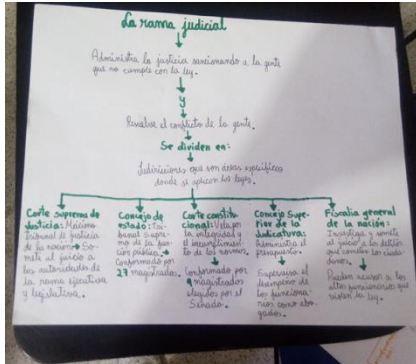 La rama judicial
Administra la justicia sancionando a la gente
que no cumple con la ley.
y
Resuelve el conflicto de la gente.
Se dividen en:
que son áreas específicas
donde se aplican las leyes.
Corte suprema de
Justicia: Máximo
tribunal de justicia
de la nación → So-
mete al juicio a
las autoridades de
la rama ejecutiva
y legislativa.
Concejo de
estado: Tri-
bunal supre-
mo de la fun-
ción pública →
Conformado por
27 magistrados.
Corte constitu-
cional: Vela por
la integridad y
el incumplimien-
to de las normas.
Conformado por
9 magistrados
elegidos por el
Senado.
Concejo Supe-
rior de la
Judicatura:
Administra el
presupuesto.
Supervisa el
desempeño de
los funciona-
rios como abo-
gados.
Fiscalia general
de la nación:
Investiga y somete
al juicio a los delitos
que comete los ciuda-
danos.
Pueden acusar a los
altos funcionarios que
violen la ley.